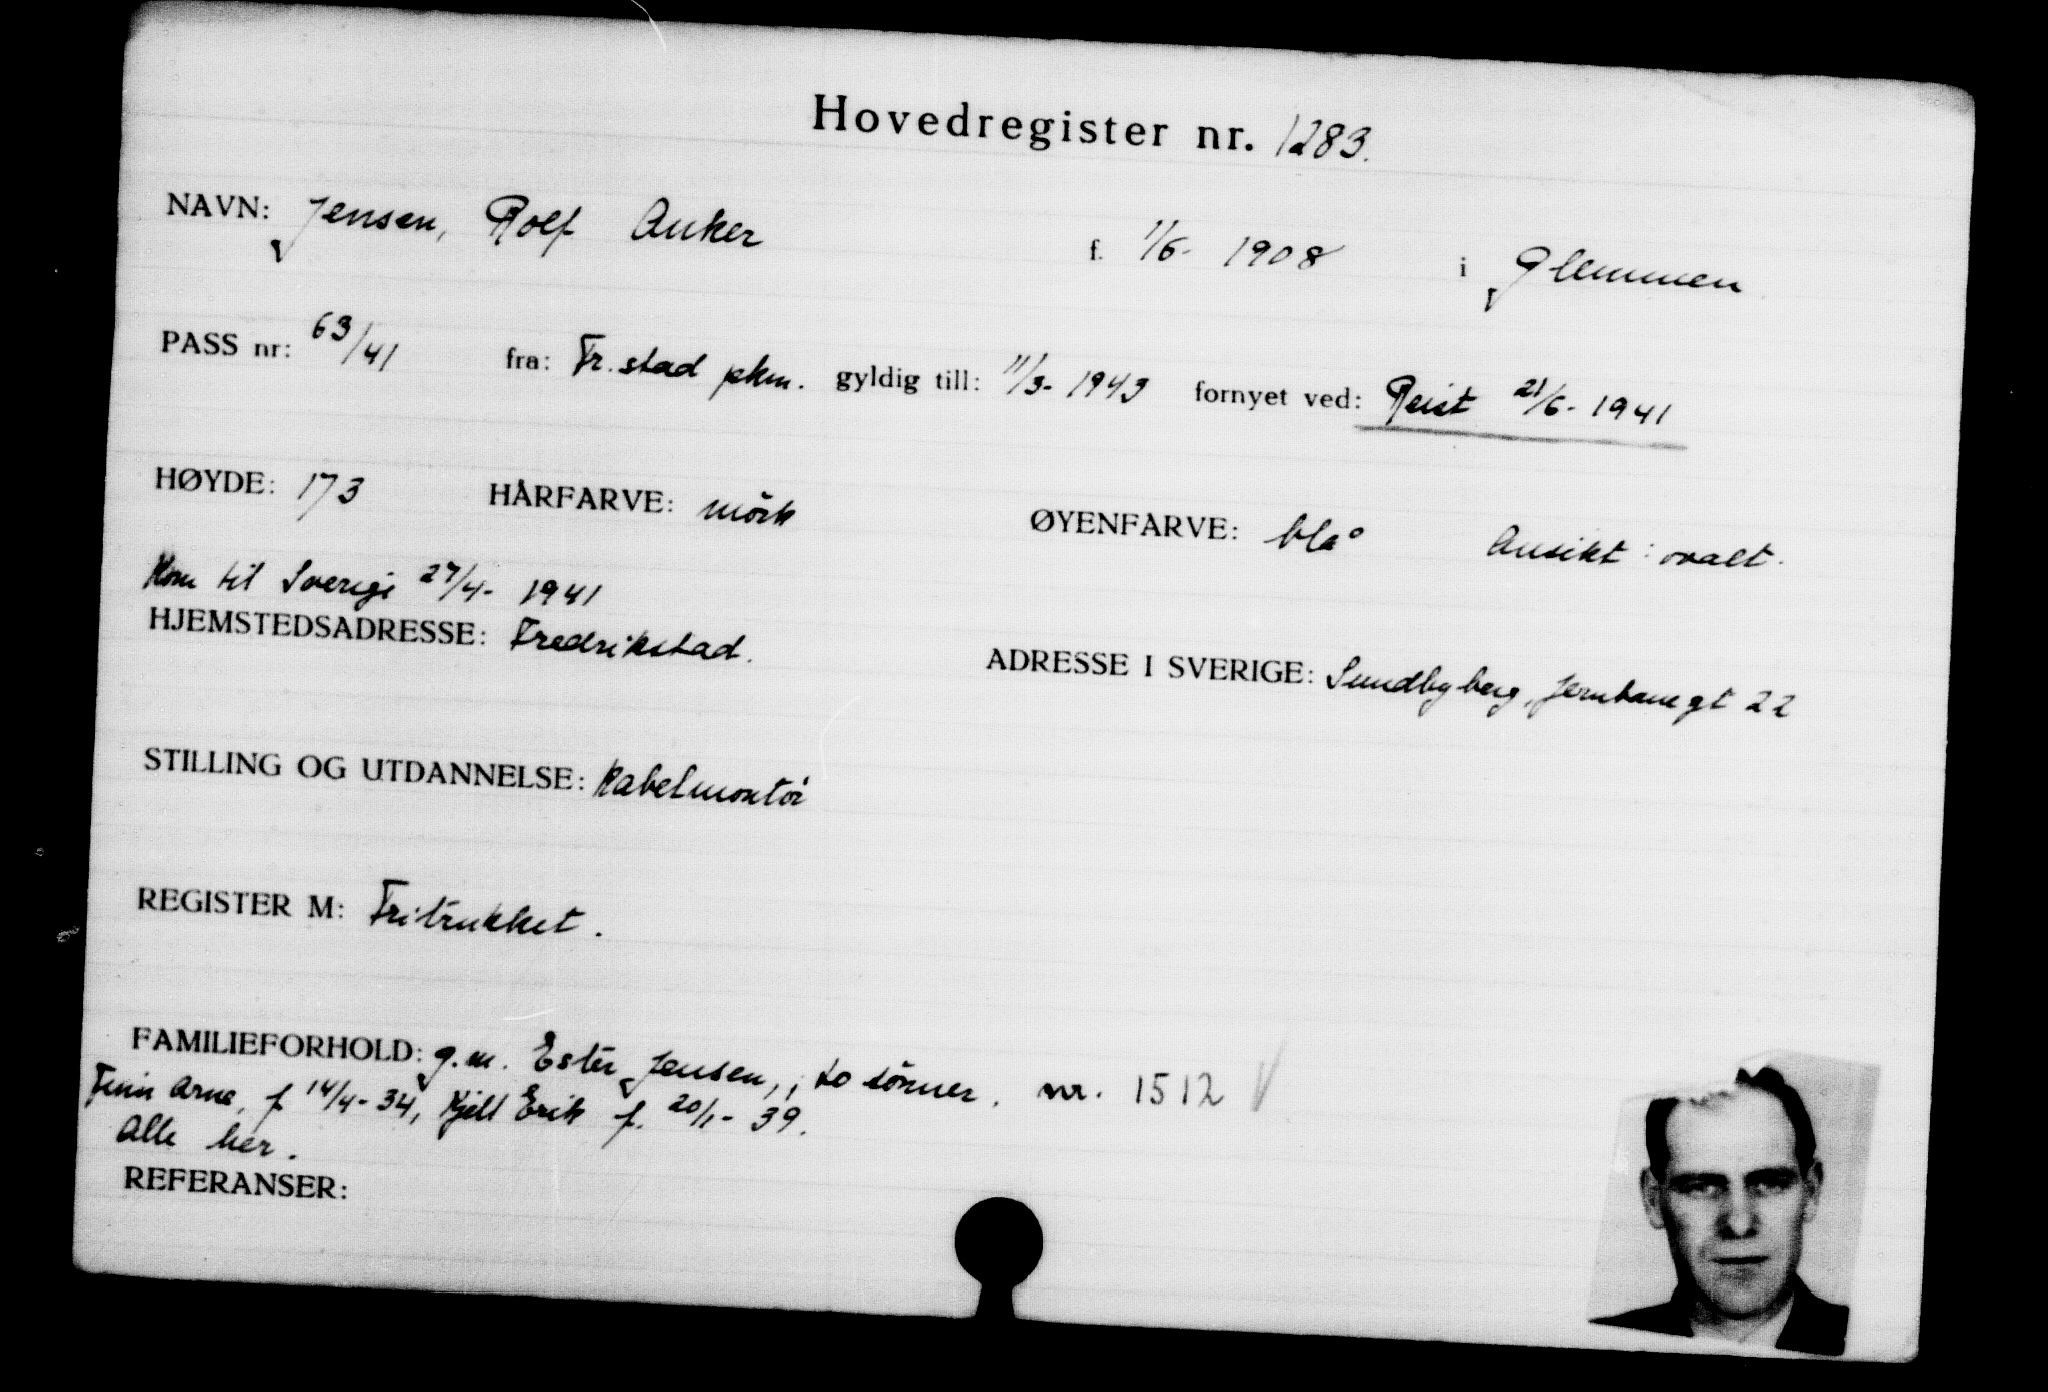 Hovedregister nr. 1283.
NAVN: Jensen, Rolf Anker f. 1/6- 1908 i Glemmen
PASS nr: 63/41 fra: Fr.stad pkm. gyldig till: 11/3- 1943 fornyet ved: Reist 21/6- 1941
HØYDE: 173 HÅRFARVE: mörk ØYENFARVE: blå Ansikt: ovalt.
Kom til Sverige 27/4- 1941
HJEMSTEDSADRESSE: Fredrikstad. ADRESSE I SVERIGE: Sundbyberg, Jernbanegt 22
STILLING OG UTDANNELSE: Kabelmontör
REGISTER M: Fritrukket.
FAMILIEFORHOLD: g.m. Ester Jensen, to sönner. nr. 1512
Finn Arne, f 14/4-34, Kjell Erik f. 20/1-39.
Alle her.
REFERANSER: